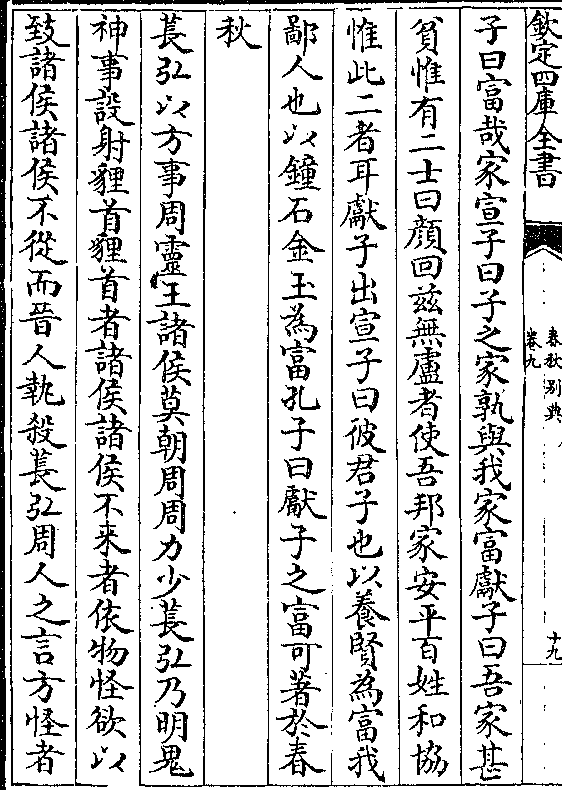 欽定四庫全書
春秋别典
卷九
十九
子曰富哉家宣子曰子之家孰與我家富獻子曰吾家甚
貧惟有二士曰顔回兹無盧者使吾邦家安平百姓和協
惟此二者耳獻子出宣子曰彼君子也以養賢為富我
鄙人也以鐘石金玉為富孔子曰獻子之富可著於春
秋
萇弘以方事周靈王諸侯莫朝周周力少萇弘乃明鬼
神事設射貍首貍首者諸侯諸侯不来者依物怪欲以
致諸侯諸侯不從而晉人執殺萇弘周人之言方怪者